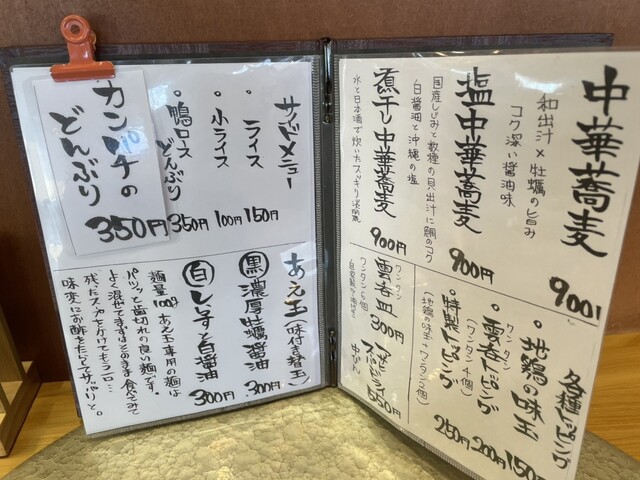 中華蕎麦
和出汁×牡蠣の旨み
コク深い醤油味
900
塩中華蕎麦
国産しじみと数種の貝出汁に鯛のコク
白醤油と沖縄の塩
900円
煮干し中華蕎麦
900円
各種トッピング
・地鶏の味玉
150
・雲呑トッピング
ワンタン
(ワンタン4個)
200円
・特製トッピング
(地鶏の味玉+ワンタン2個)
250円
雲呑皿
ワンタン
300円
550円
サイドメニュー
・ライス
150円
・小ライス
100円
・鴨ロスどんぶり
350円
カンパチの
どんぶり
350円
あえ玉
(味付き替玉)
黒 濃厚牡蠣醤油
300円
白 しらすと白醤油
300円
麺量100g あえ玉専用の麺は
パツッと歯切れの良い麺です。
よく混ぜてまずはそのまま食べてみて
残ったスープにつけてもうコロ…
味変にお酢をたらしてサッパリと。